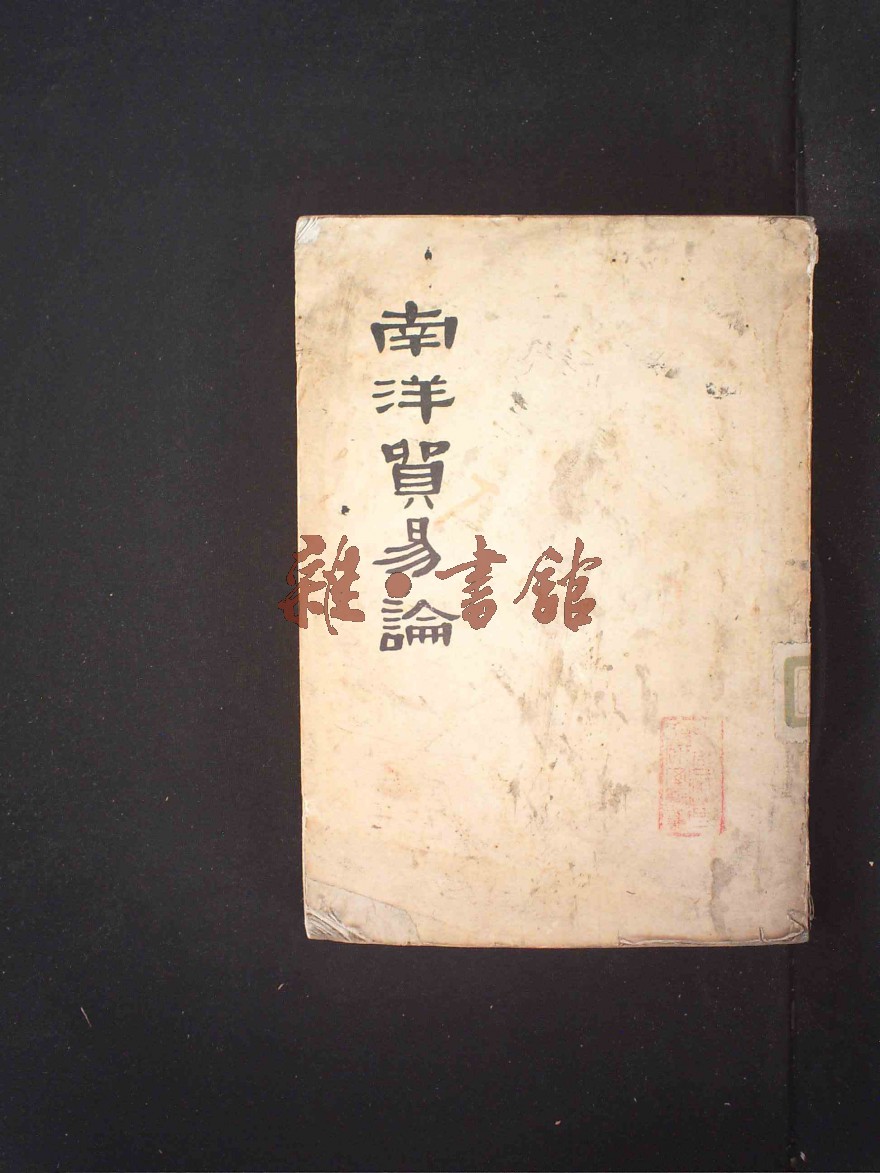 南洋貿易論
雜·書館